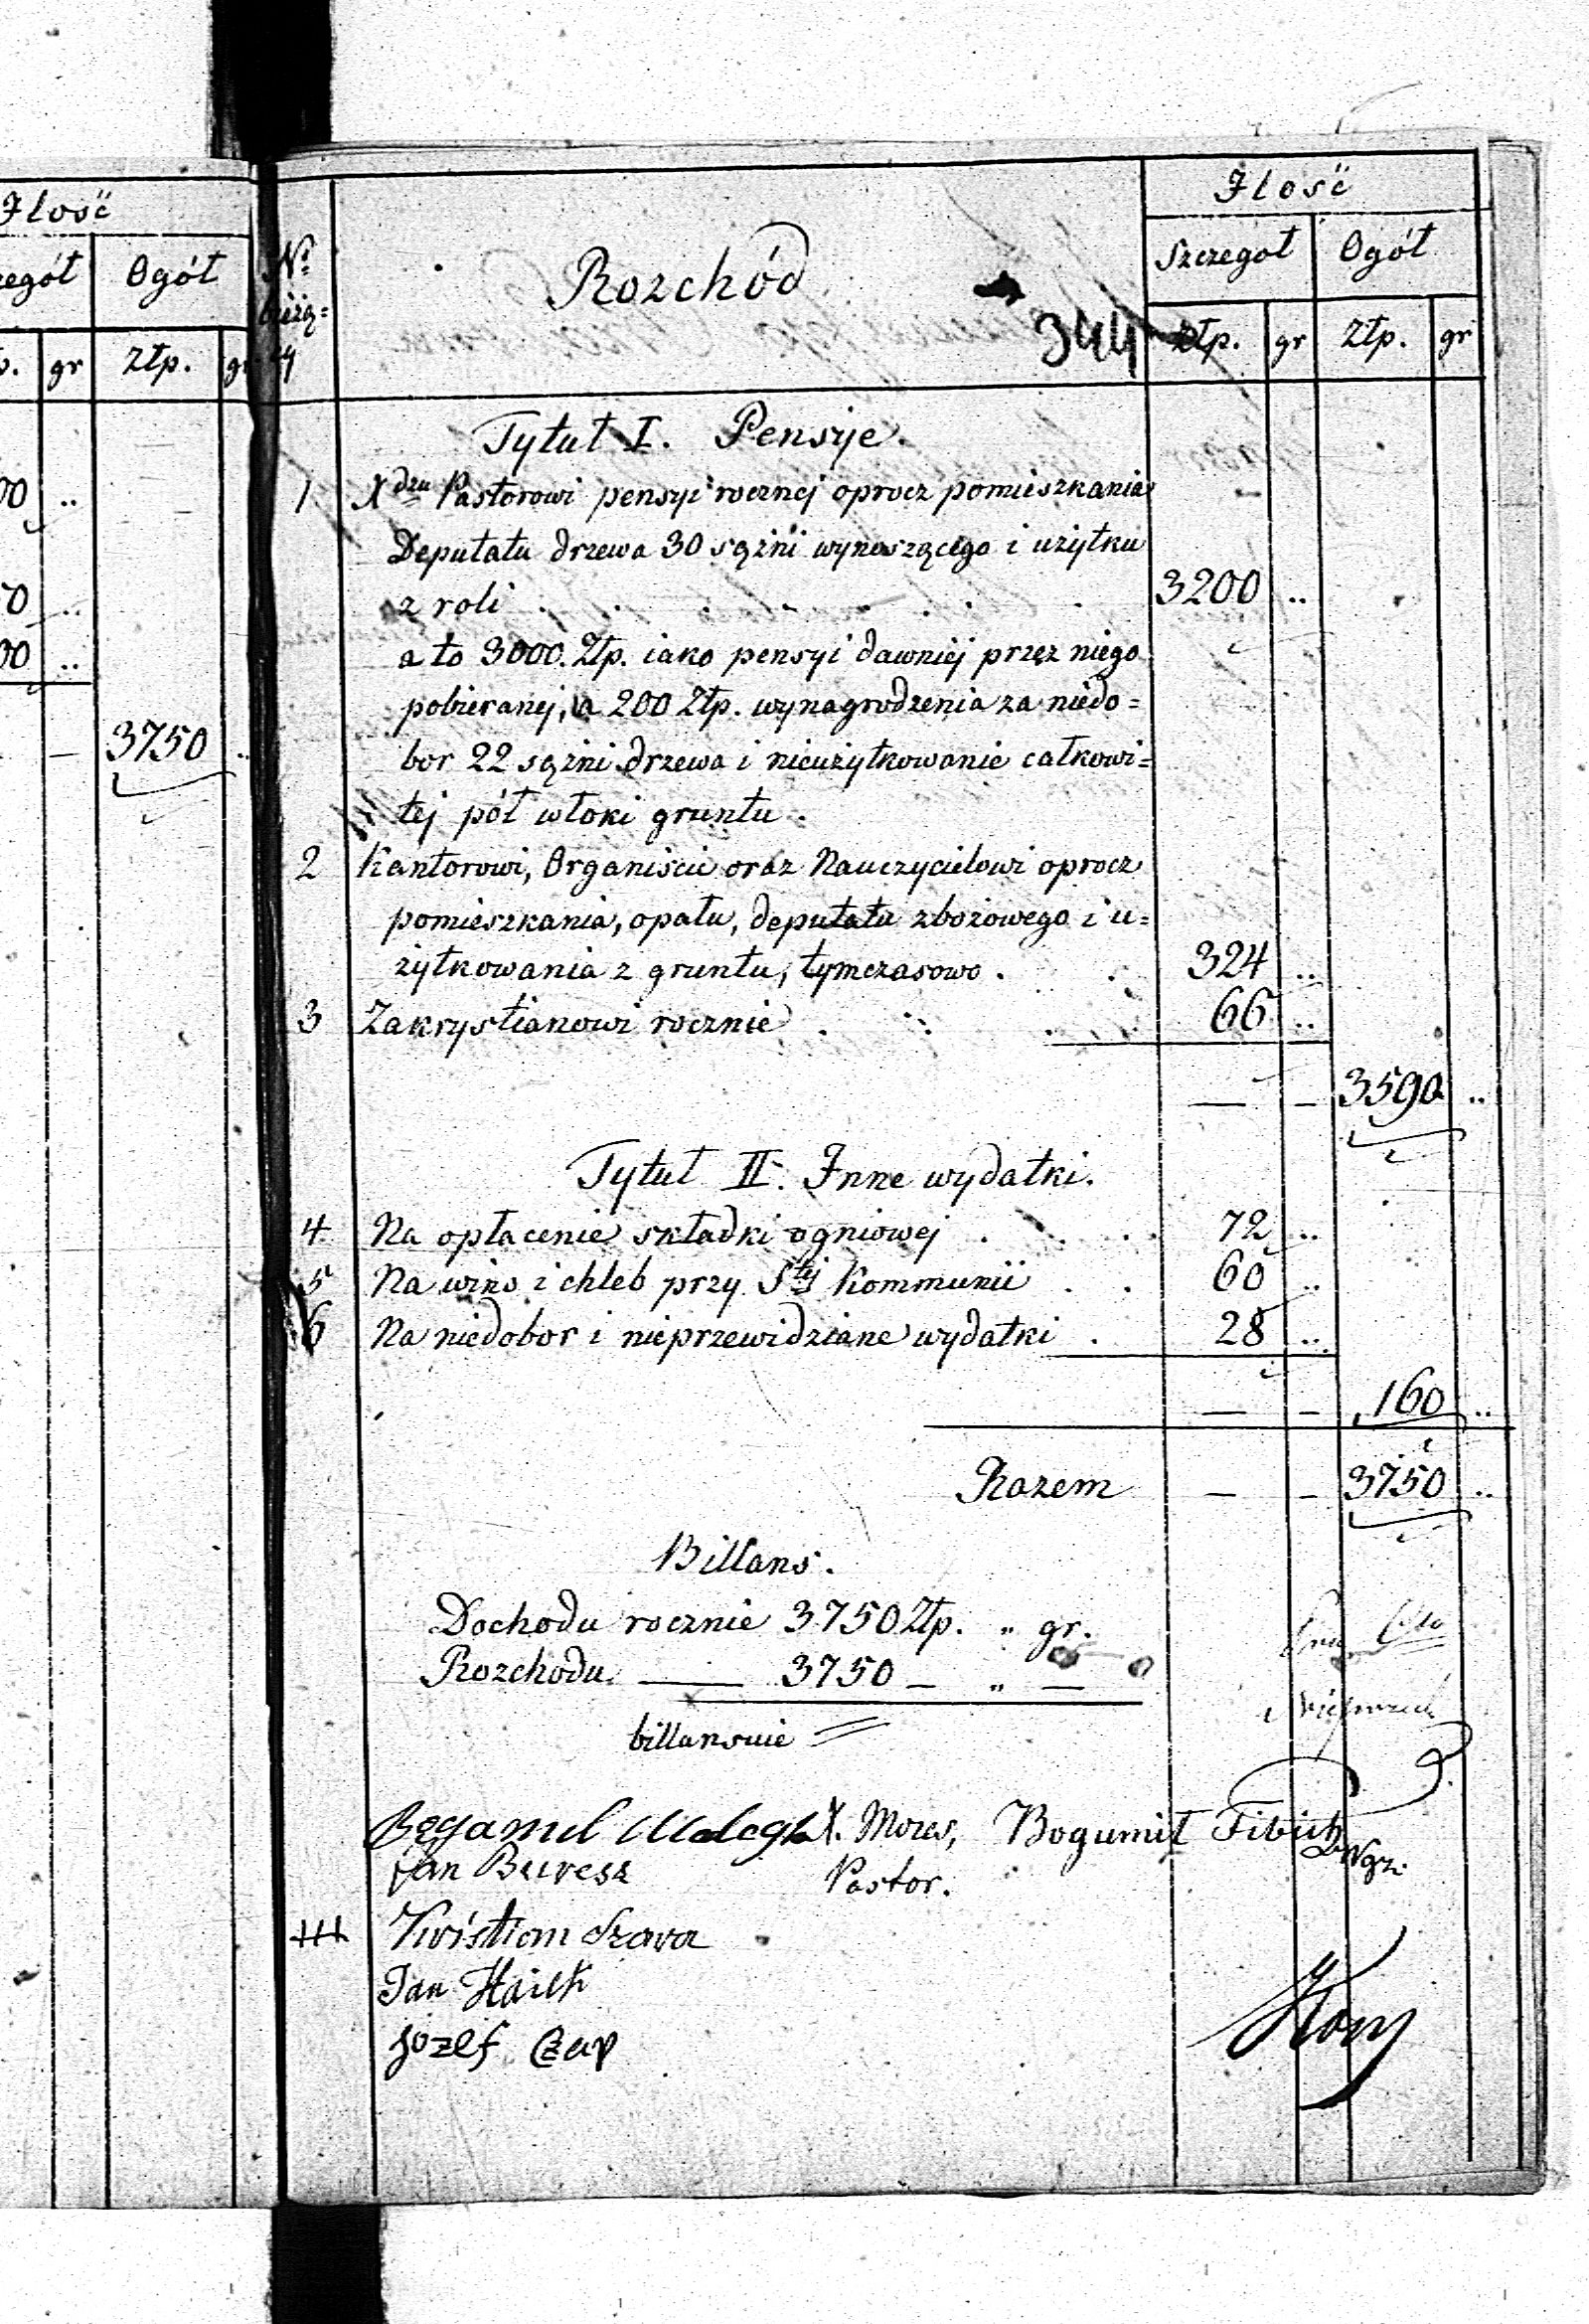 Ilość
Ogół
gr Złp. gr
3750 ..
No bieżą= cy
Rozchód
344
Ilość
Szczegół Ogół
Złp. gr Złp. gr
Tytuł I. Pensye.
1 Xdzu Pastorowi pensyi roczнej oprocz pomieszkania
Deputatu drzewa 30 sążni wynoszącego i użytku
z roli . . . . . . 3200 ..
a to 3000. Złp. iako pensyi dawniej przez niego
pobieranej, a 200 Złp. wynagrodzenia za niedo=
bor 22 sążni drzewa i nieużytkowanie całkowi=
tej pół włoki gruntu.
2 Kantorowi, Organiście oraz Nauczycielowi oprocz
pomieszkania, opału, deputatu zbożowego i u=
żytkowania z gruntu, tymczasowo . . 324 ..
3 Zakrystianowi rocznie . . . . 66 ..
— — 3590 ..
Tytuł II. Inne wydatki.
4 Na opłacenie składki ogniowej . . . . 72 ..
5 Na wino i chleb przy Stej Kommunii . . 60 ..
6 Na niedobor i nieprzewidziane wydatki . 28 ..
— — 160 ..
Razem — — 3750 ..
Billans.
Dochodu rocznie 3750 Złp. „ gr.
Rozchodu — 3750 — „ —
billansuie =
X. Mozes, Bogumił Fibich
Jan Buresz Pastor.
+++ Kristian Szara
Jan
Jozef Czap